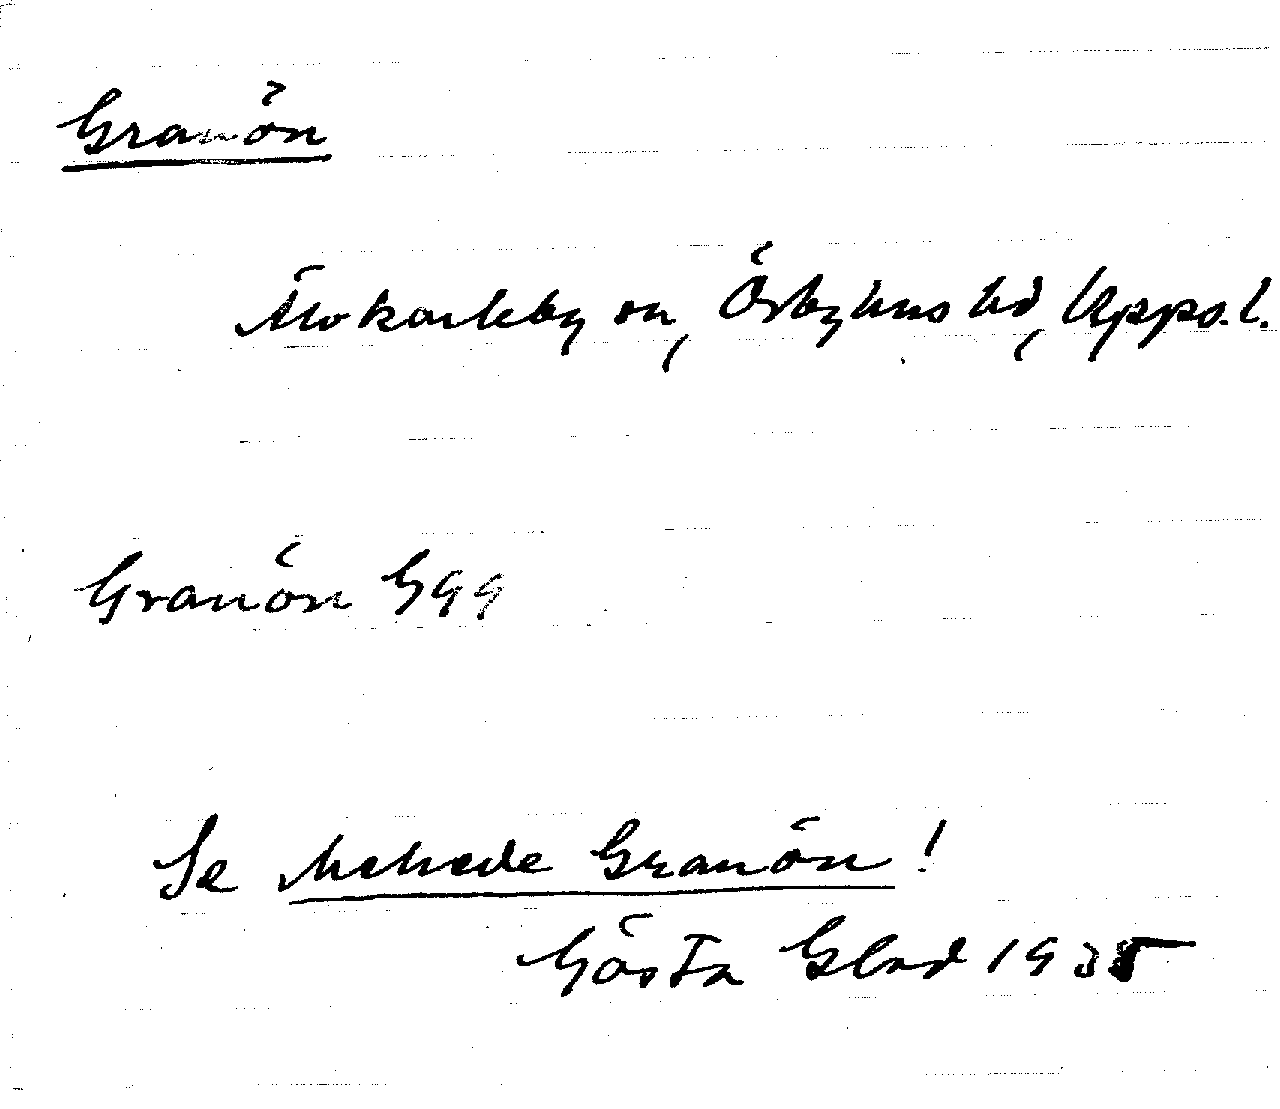 Granön
Älvkarleby sn, Örbyhus hd, Upps. l.
Granön G99
Se Mehede Granön!
Gösta Blad 1935